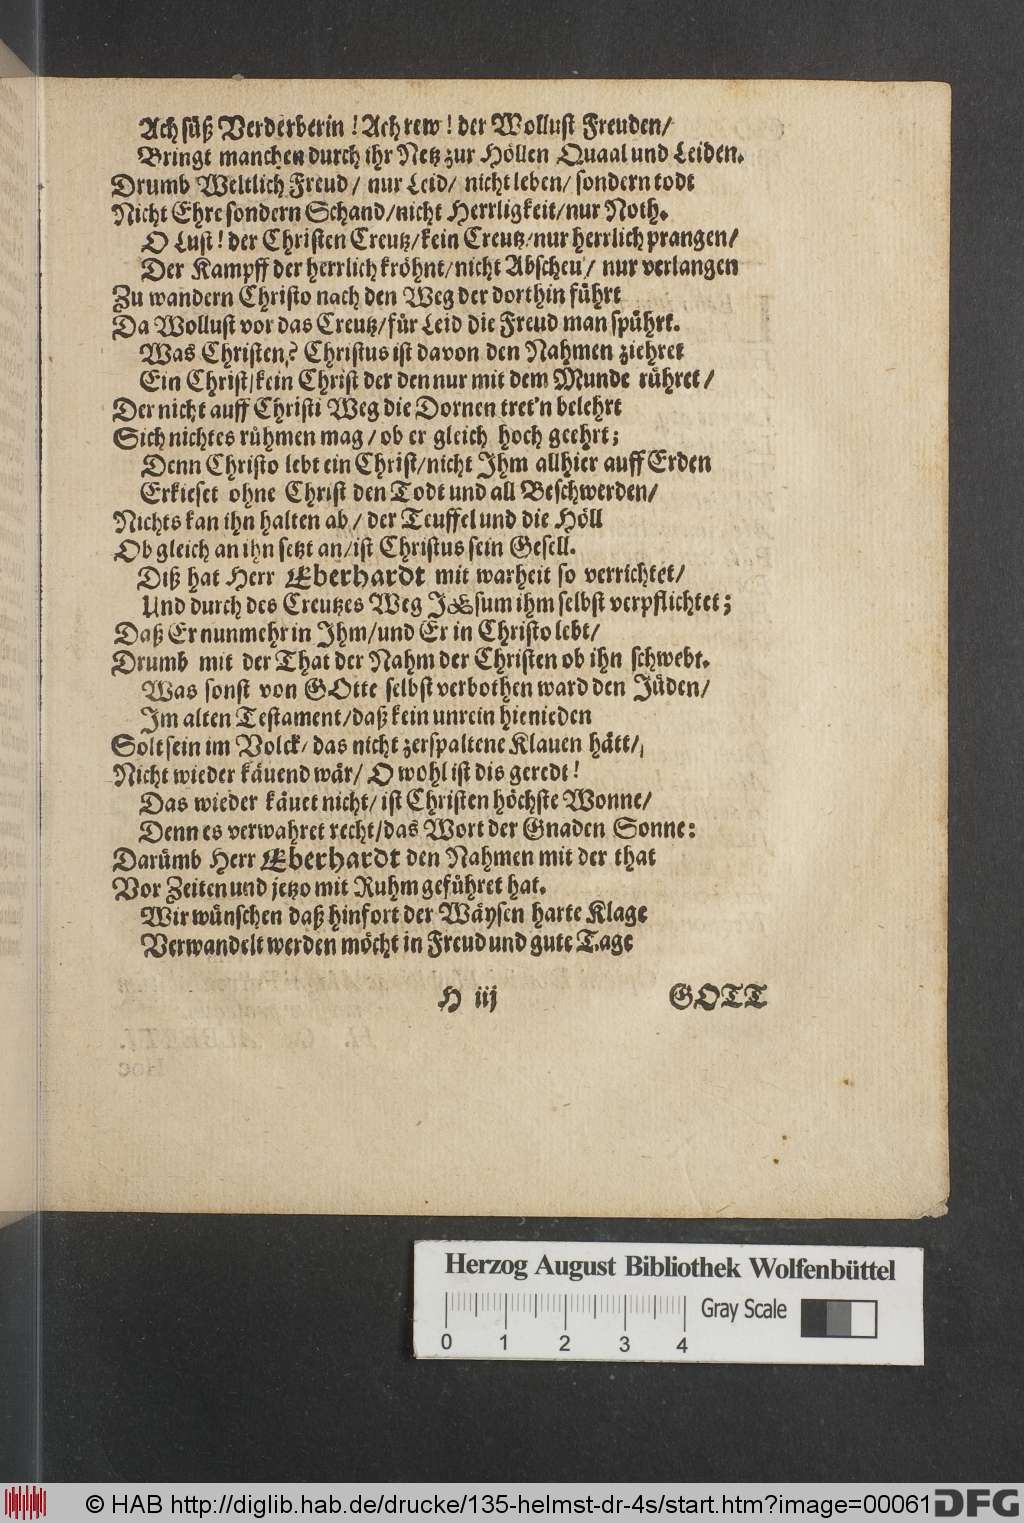 Ach süß Verderberin ! Ach rew ! der Wollust Freuden/
Bringt manchen durch ihr Netz zur Höllen Quaal und Leiden.
Drumb Weltlich Freud / nur Leid / nicht leben / sondern todt
Nicht Ehre sondern Schand/nicht Herrligkeit/nur Noth.
O Lust ! der Christen Creutz/kein Creutz/nur herrlich prangen/
Der Kampff der herrlich kröhnt/nicht Abscheu / nur verlangen
Zu wandern Christo nach den Weg der dorthin führt
Da Wollust vor das Creutz/für Leid die Freud man spührt.
Was Christen? Christus ist davon den Nahmen ziehret
Ein Christ/kein Christ der den nur mit dem Munde rühret /
Der nicht auff Christi Weg die Dornen tret'n belehrt
Sich nichtes rühmen mag / ob er gleich hoch geehrt;
Denn Christo lebt ein Christ/nicht Ihm allhier auff Erden
Erkieset ohne Christ den Todt und all Beschwerden/
Nichts kan ihn halten ab / der Teuffel und die Höll
Ob gleich an ihn setzt an/ist Christus sein Gesell.
Diß hat Herr Eberhardt mit warheit so verrichtet/
Und durch des Creutzes Weg JEsum ihm selbst verpflichtet;
Daß Er nunmehr in Ihm/und Er in Christo lebt/
Drumb mit der That der Nahm der Christen ob ihn schwebt.
Was sonst von GOtte selbst verbothen ward den Jüden/
Im alten Testament/daß kein unrein hienieden
Solt sein im Volck/ das nicht zerspaltene Klauen hätt/
Nicht wieder käuend wär/ O wohl ist dis geredt !
Das wieder käuet nicht/ ist Christen höchste Wonne/
Denn es verwahret recht/das Wort der Gnaden Sonne:
Darümb Herr Eberhardt den Nahmen mit der that
Vor Zeiten und jetzo mit Ruhm geführet hat.
Wir wünschen daß hinfort der Wäysen harte Klage
Verwandelt werden möcht in Freud und gute Tage
H iij GOTT
Herzog August Bibliothek Wolfenbüttel
Gray Scale
0 1 2 3 4
© HAB http://diglib.hab.de/drucke/135-helmst-dr-4s/start.htm?image=00061
DFG